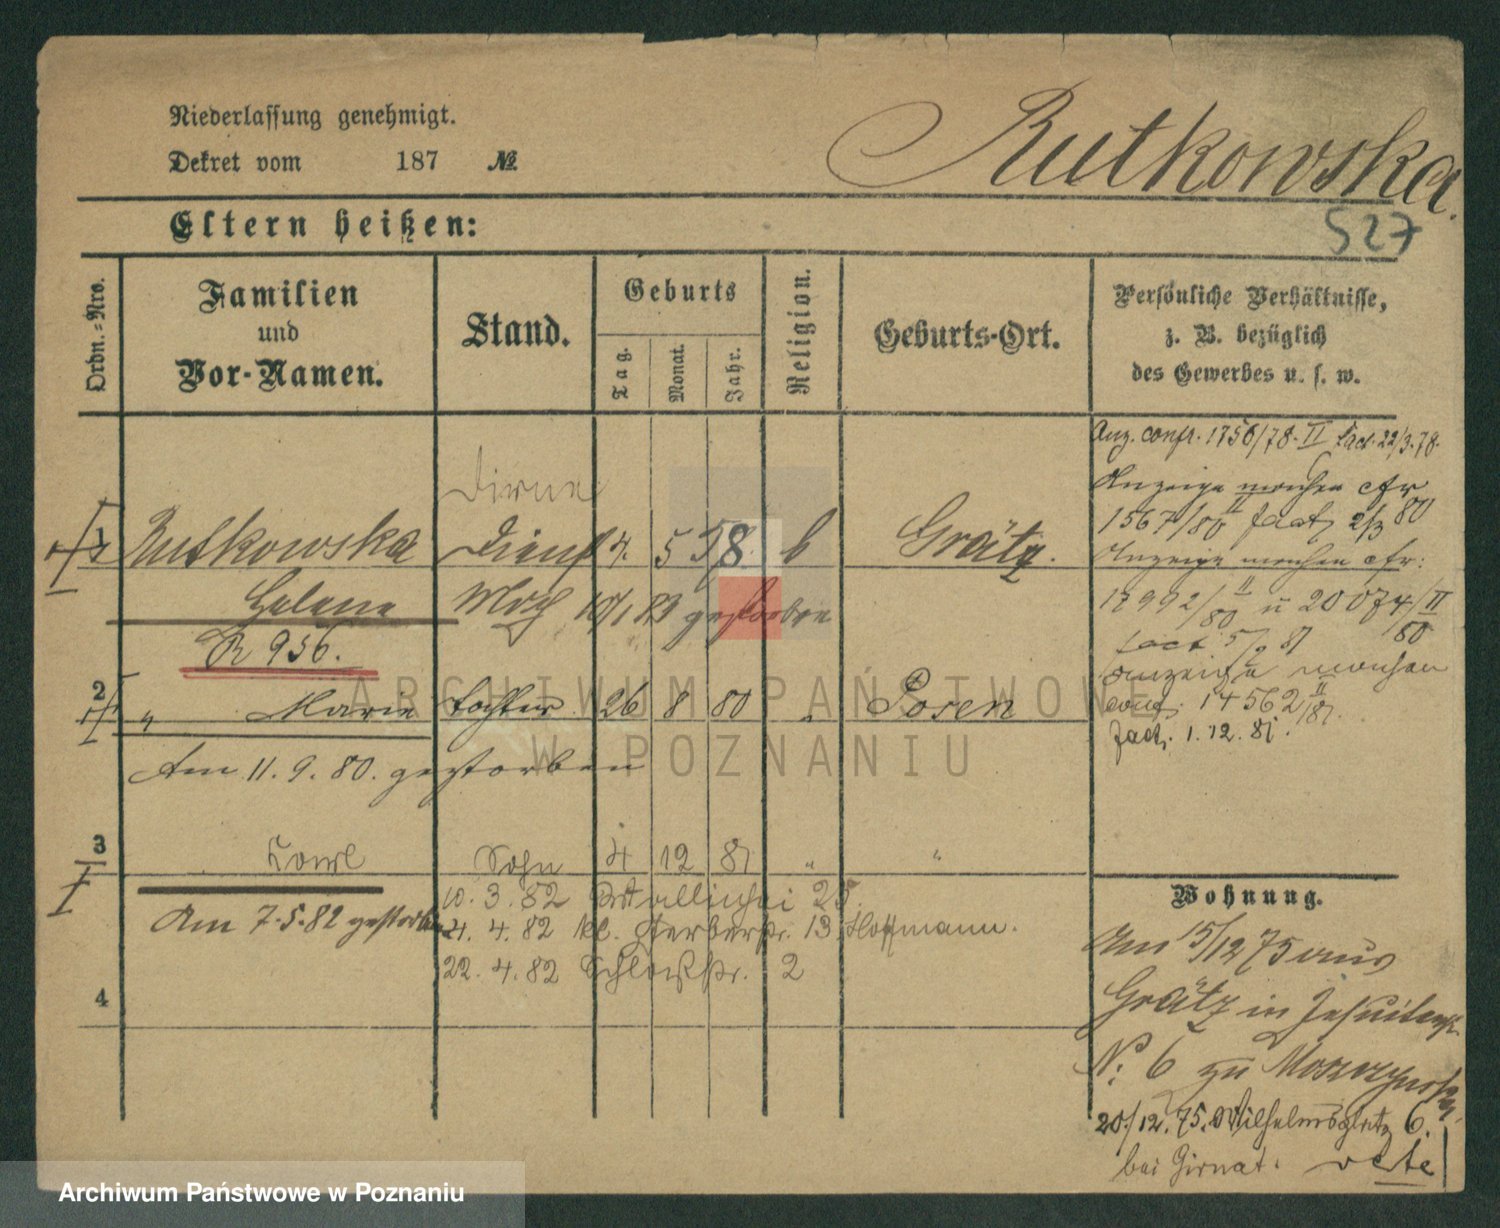 Niederlassung genehmigt.
Dekret vom 187 №
Rutkowska.
527
Eltern heißen:
Ordn.-Nro.
Familien
und
Vor-Namen.
Stand.
Geburts
Tag.
Monat.
Jahr.
Religion.
Geburts-Ort.
Persönliche Verhältnisse,
z. B. bezüglich
des Gewerbes u. s. w.
Anz. conf. 1756/78. II fact. 22/3. 78.
Anzeige cfr
1567/80 II fact. 2/3 80
Anzeige cfr:
17992/80 II u 20074/80 II
fact 5/ 81
Anzeige
conf. 14562/81 II
fact. 1. 12. 81.
Dirne
1 Rutkowska Dienst 4. 5 58. k Grätz.
Helena Mdch 10/1 83 gestorben
R 956.
2 " Marie Tochter 26 8 80 " Posen
Am 11. 9. 80. gestorben
3 Karl Sohn 4 12 81 " "
10. 3. 82 25.
Am 7. 5. 82 gestorben
4. 4. 82 kl. Gerberstr. 13 Hoffmann.
22. 4. 82 Schloßstr. 2
4
Wohnung.
Am 15/12 75 aus
Grätz in Jesuitenstr.
N. 6 zu
20/12. 75. Wilhelmsplatz 6.
bei Girnat. verte
ARCHIWUM PAŃSTWOWE
W POZNANIU
Archiwum Państwowe w Poznaniu